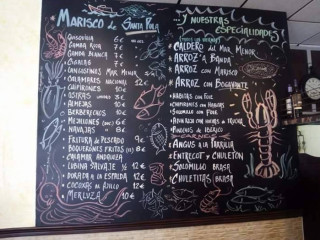 Marisco de Santa Pola
6 €
Gamba Roja 7 €
Gamba Blanca 7 €
4 €
Langostinos Mar Menor
Calamares Nacional 12 €
Chipirones 10 €
12 €
Almejas 10 €
Berberechos 10 €
Mejillones 6 €
Navajas 8 €
Fritura de Pescado 9 €
Boquerones Fritos 8 €
Calamar Andaluza 12 €
Lubina Salvaje 12 €
Dorada a la Espalda 12 €
Cocochas al Ajillo 12 €
Merluza 10 €
...y nuestras
especialidades
Caldero del Mar Menor
Arroz "a Banda"
Arroz con Marisco
Arroz con Bogavante
Habitas con Foie
Chipirones con Habitas
Solomillo con Foie
Pinchos de Ibérico
Angus a la Parrilla
Entrecot y Chuletón
Solomillo Brasa
Chuletitas Brasa